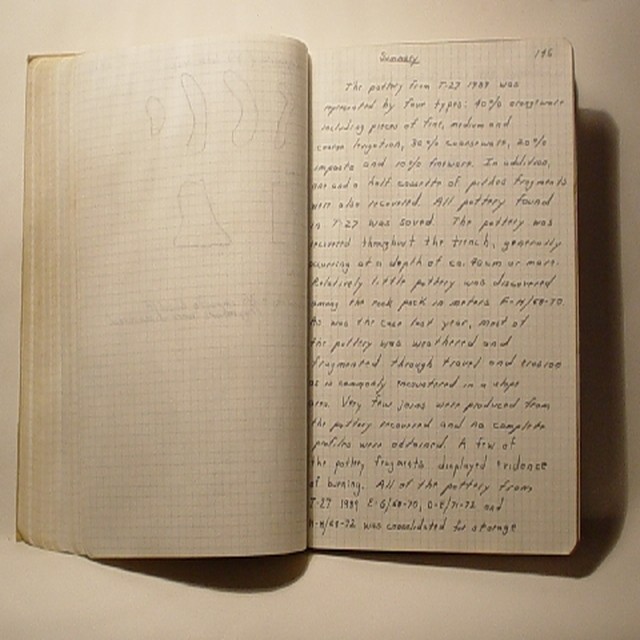 Summary
146
The pottery from T-27 1989 was
represented by four types: 40% orangeware
including pieces of fine, medium and
coarse levigation, 30% coarseware, 20%
impasto and 10% fineware. In addition,
one and a half cassette of pithos fragments
were also recovered. All pottery found
in T-27 was saved. The pottery was
recovered throughout the trench, generally
occurring at a depth of ca. 40cm or more.
Relatively little pottery was discovered
among the rock pack in meters F-H/68-70.
As was the case last year, most of
the pottery was weathered and
fragmented through travel and erosion
as is commonly encountered in a slope
area. Very few joins were produced from
the pottery recovered and no complete
profiles were obtained. A few of
the pottery fragments displayed evidence
of burning. All of the pottery from
T-27 1989 E-G/68-70, D-E/71-72 and
H/69-72 was consolidated for storage